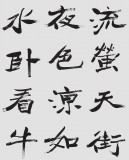 流螢天街
夜色涼如
水卧看牛